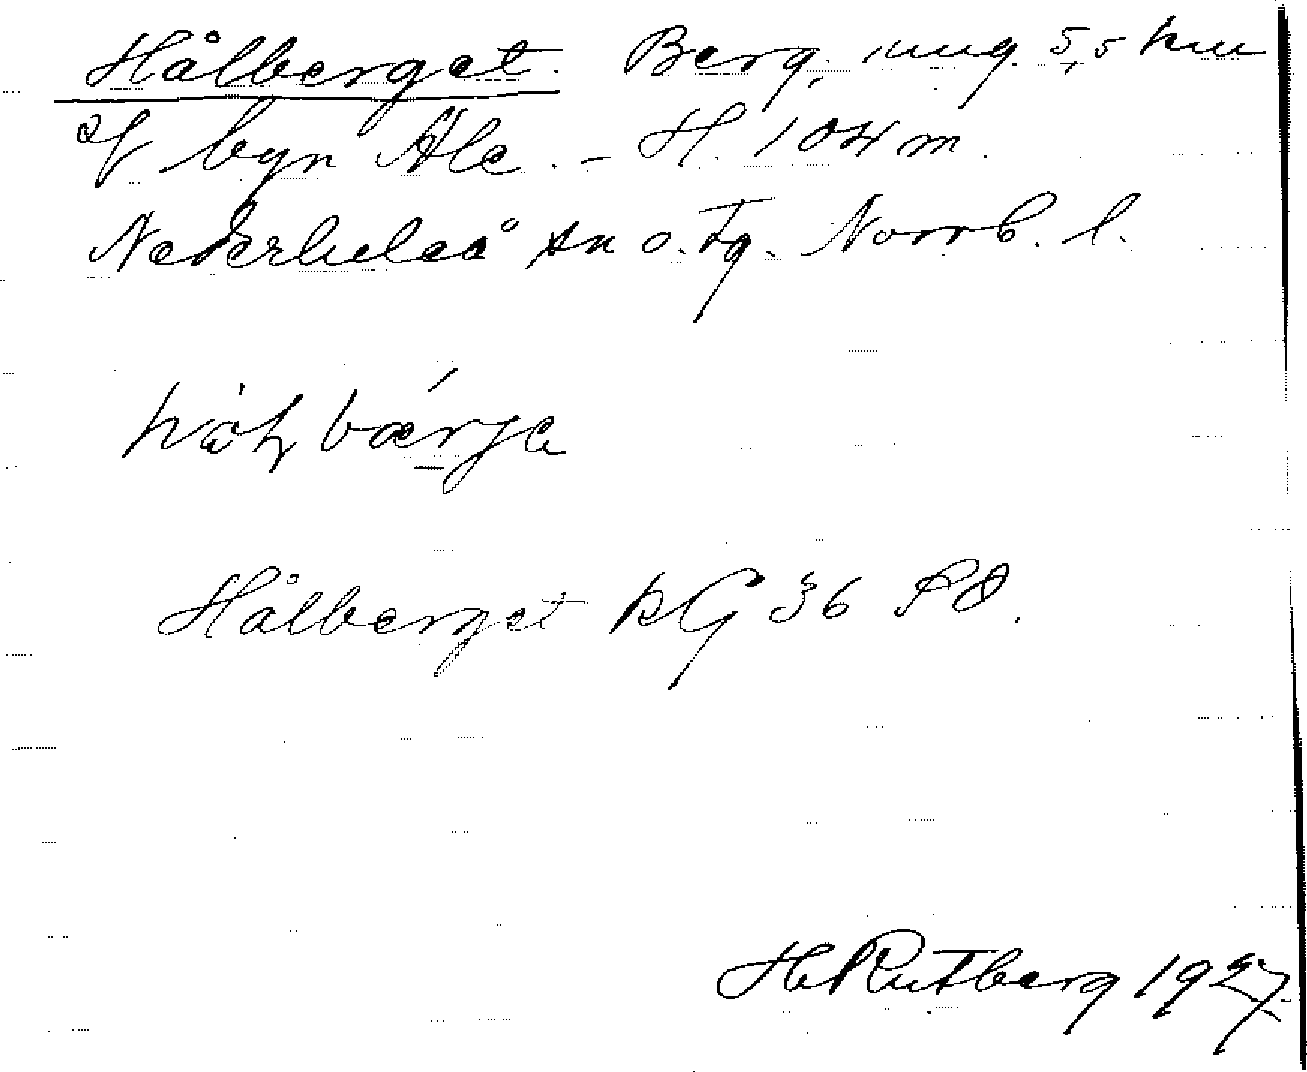 Hålberget. Berg, ung. 5,5 km
af byn Ale. - H. 104 m.
Nederluleå sn o. tg. Norrb. l.
Hålberget kG 36 SO.
H. Rutberg 1927